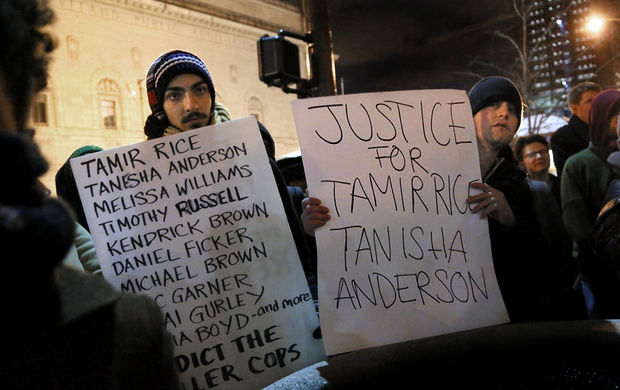 TAMIR RICE
TANISHA ANDERSON
MELISSA WILLIAMS
TIMOTHY RUSSELL
KENDRICK BROWN
DANIEL FICKER
MICHAEL BROWN
C GARNER
AI GURLEY
A BOYD -and more
DICT THE
LER COPS
JUSTICE
FOR
TAMIR RICE
TANISHA
ANDERSON